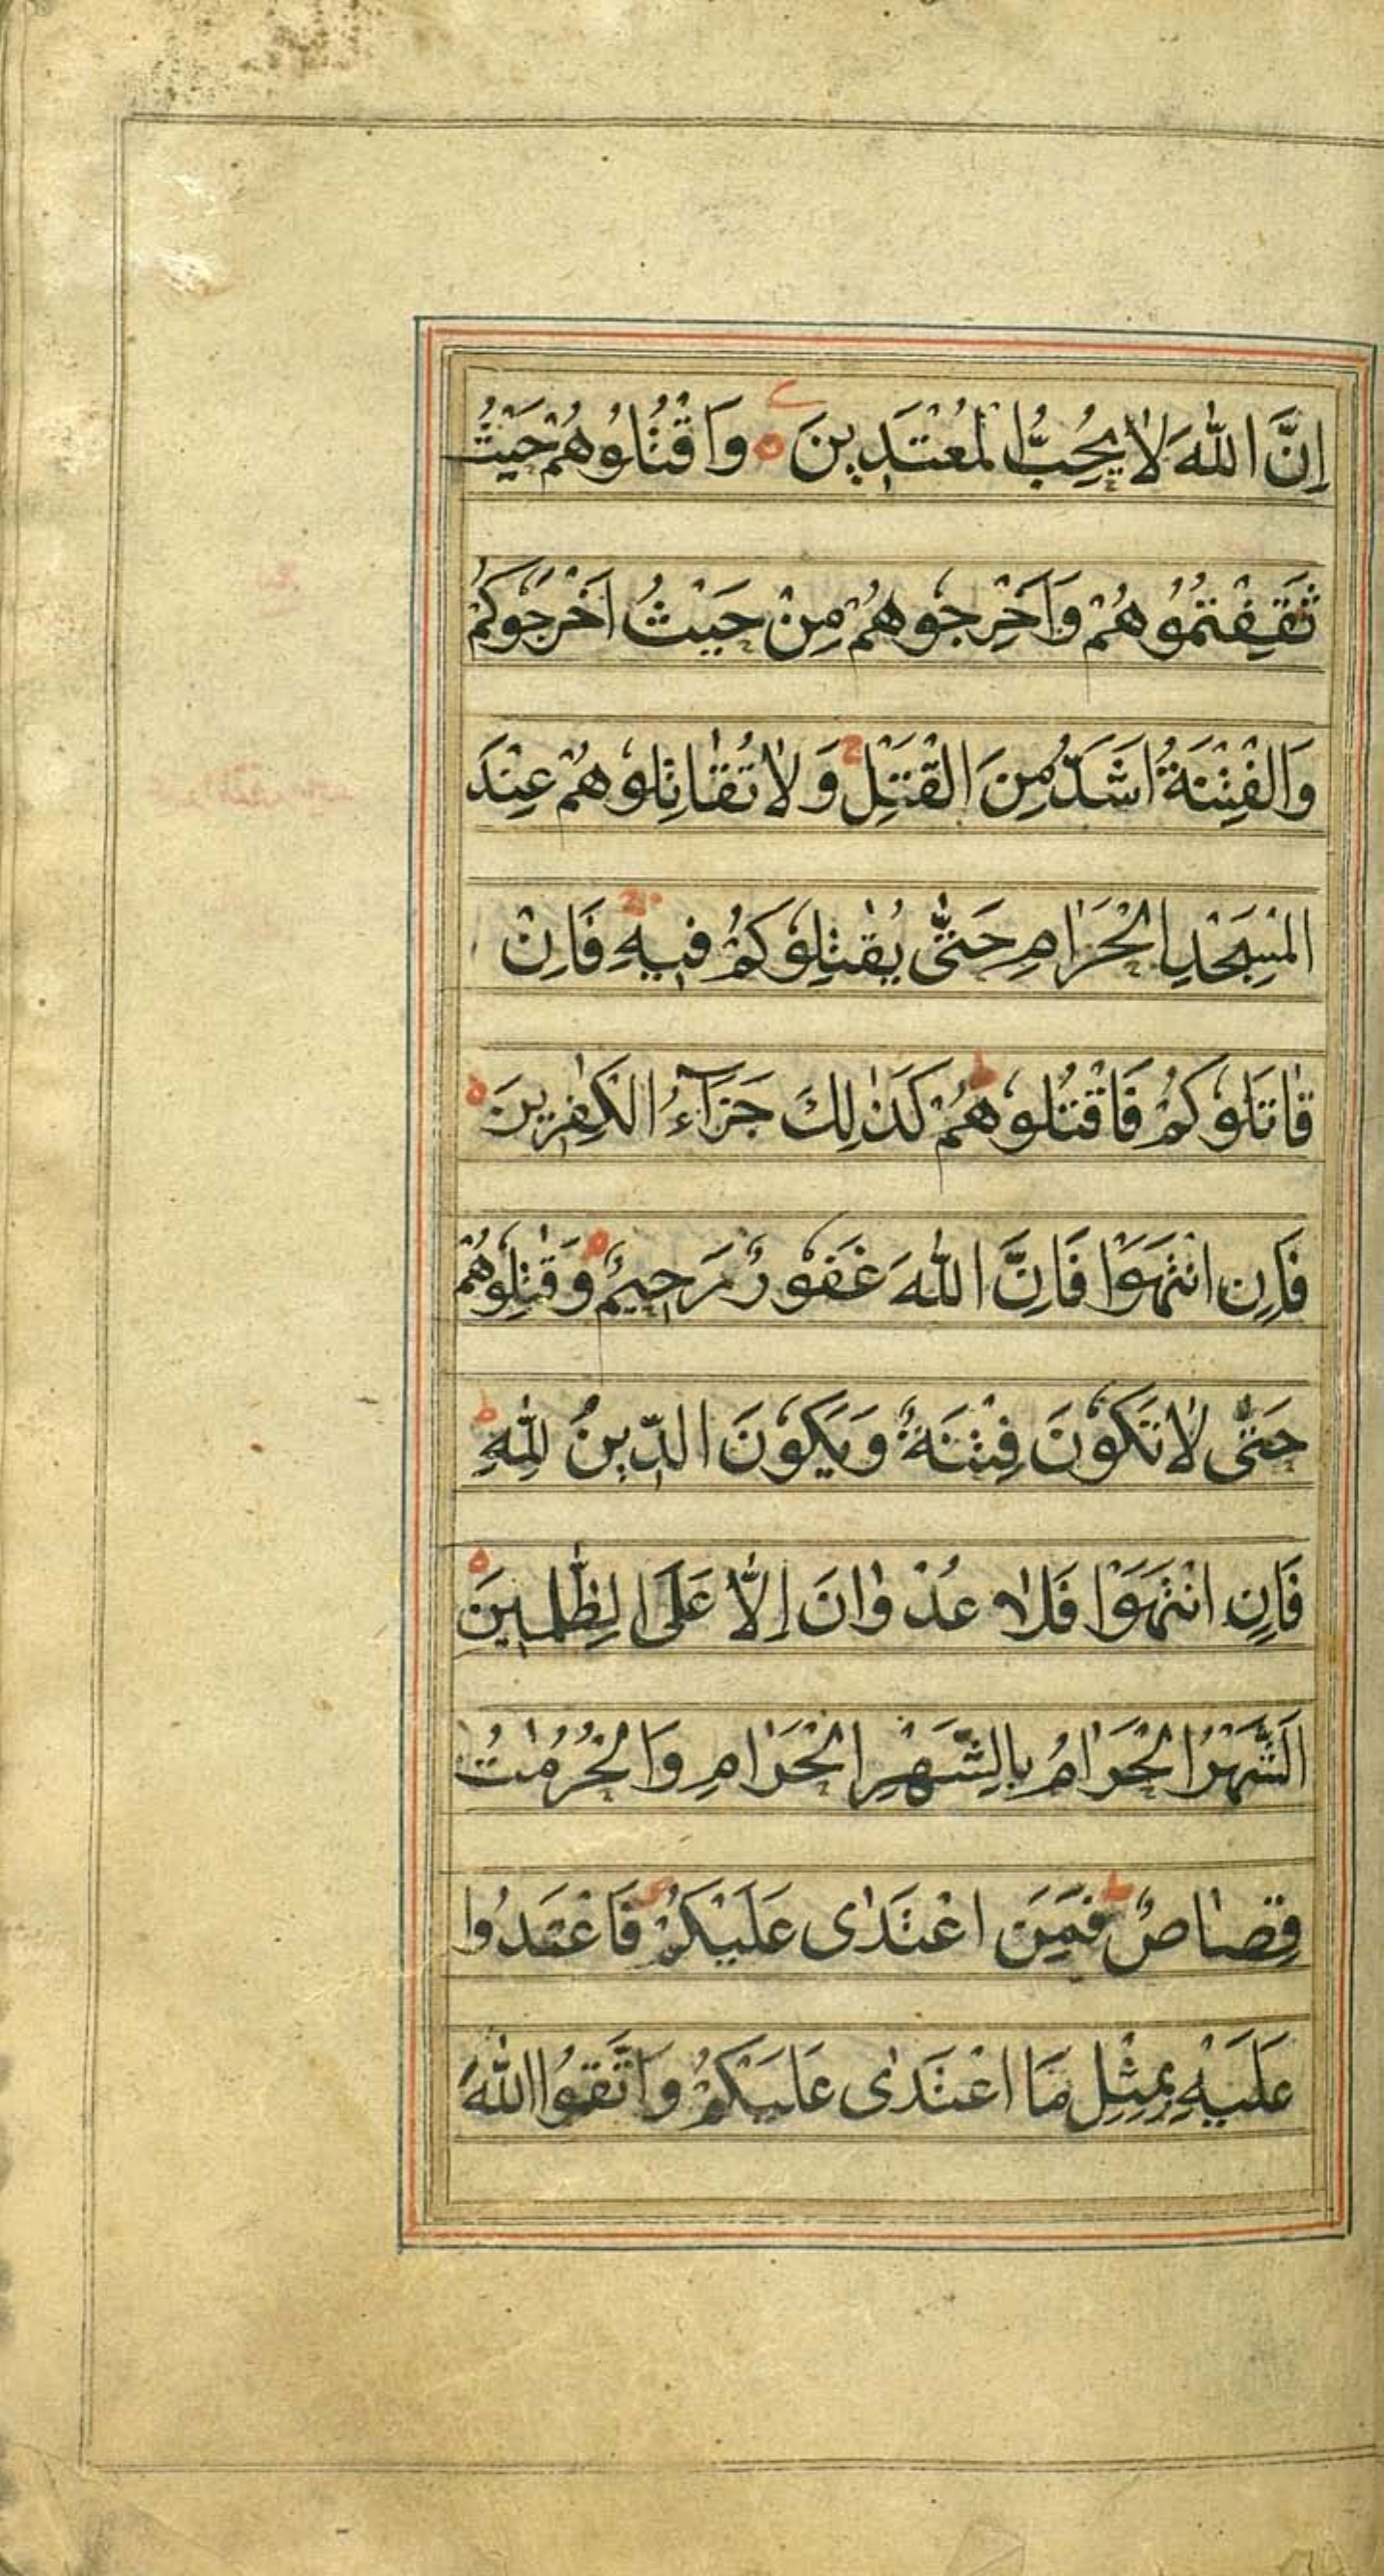 اِنَّ اللّٰهَ لَا يُحِبُّ الْمُعْتَدِينَ وَاقْتُلُوهُمْ حَيْثُ
ثَقِفْتُمُوهُمْ وَاَخْرِجُوهُمْ مِنْ حَيْثُ اَخْرَجُوكُمْ
وَالْفِتْنَةُ اَشَدُّ مِنَ الْقَتْلِ وَلَا تُقَاتِلُوهُمْ عِنْدَ
الْمَسْجِدِ الْحَرَامِ حَتّٰى يُقٰتِلُوكُمْ فِيهِ فَاِنْ
قَاتَلُوكُمْ فَاقْتُلُوهُمْ كَذٰلِكَ جَزَآءُ الْكٰفِرِينَ
فَاِنِ انْتَهَوْا فَاِنَّ اللّٰهَ غَفُورٌ رَحِيمٌ وَقٰتِلُوهُمْ
حَتّٰى لَا تَكُونَ فِتْنَةٌ وَيَكُونَ الدِّينُ لِلّٰهِ
فَاِنِ انْتَهَوْا فَلَا عُدْوَانَ اِلَّا عَلَى الظّٰلِمِينَ
اَلشَّهْرُ الْحَرَامُ بِالشَّهْرِ الْحَرَامِ وَالْحُرُمٰتُ
قِصَاصٌ فَمَنِ اعْتَدٰى عَلَيْكُمْ فَاعْتَدُوا
عَلَيْهِ بِمِثْلِ مَا اعْتَدٰى عَلَيْكُمْ وَاتَّقُوا اللّٰهَ